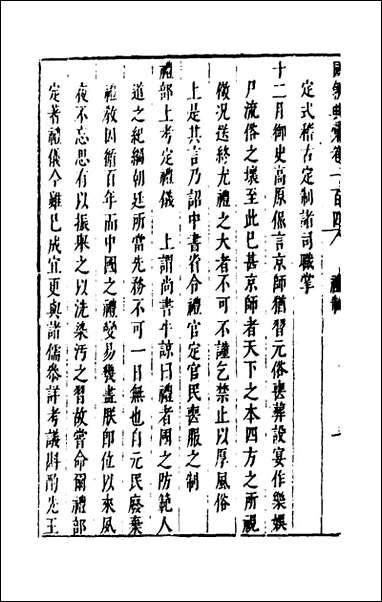 國朝典彙卷一百四 禮制 一
定式稽古定制諸司職掌
十二月御史高原侃言京師猶習元俗喪葬設宴作樂娛
尸流俗之壞至此已甚京師者天下之本四方之所視
傚況送終尤禮之大者不可不謹乞禁止以厚風俗
上是其言乃詔中書省令禮官定官民喪服之制
禮部上考定禮儀 上謂尚書牛諒曰禮者國之防範人
道之紀綱朝廷所當先務不可一日無也自元氏廢棄
禮教因循百年而中國之禮變易幾盡朕即位以來夙
夜不忘思有以振舉之以洗染汚之習故嘗命爾禮部
定著禮儀今雖已成宜更與諸儒參詳考議斟酌先王